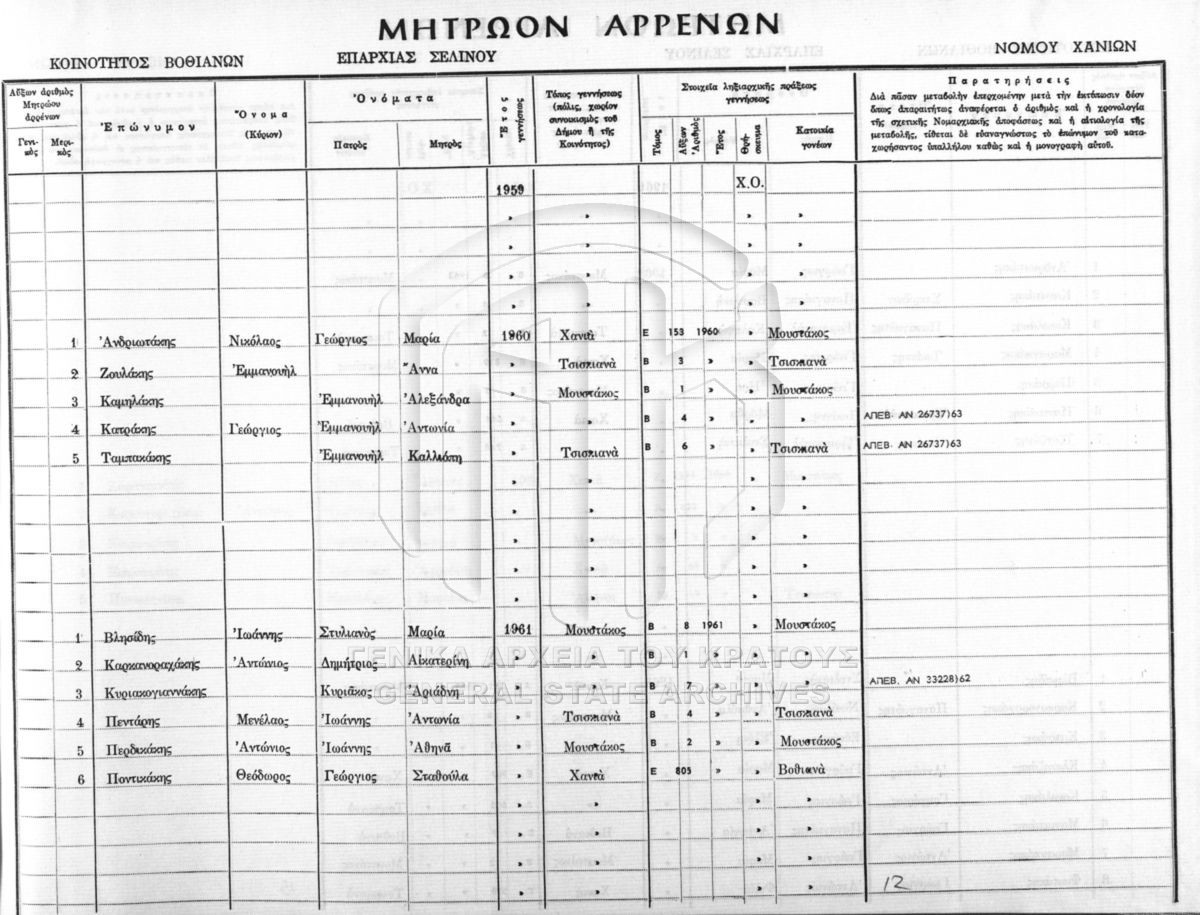 ΜΗΤΡΩΟΝ ΑΡΡΕΝΩΝ
ΚΟΙΝΟΤΗΤΟΣ ΒΟΘΙΑΝΩΝ ΕΠΑΡΧΙΑΣ ΣΕΛΙΝΟΥ ΝΟΜΟΥ ΧΑΝΙΩΝ
Αὔξων ἀριθμὸς Μητρώου ἀρρένων
Γενικὸς Μερικὸς
Ἐπώνυμον
Ὄνομα (Κύριον)
Ὀνόματα
Πατρὸς Μητρὸς
Ἔτος γεννήσεως
Τόπος γεννήσεως (πόλις, χωρίον συνοικισμὸς τοῦ Δήμου ἢ τῆς Κοινότητος)
Στοιχεῖα ληξιαρχικῆς πράξεως γεννήσεως
Τόμος Αὔξων Ἀριθμὸς Ἔτος Θρήσκευμα Κατοικία γονέων
Παρατηρήσεις
Διὰ πᾶσαν μεταβολὴν ἐπερχομένην μετὰ τὴν ἐκτύπωσιν δέον
ὅπως ἀπαραιτήτως ἀναφέρεται ὁ ἀριθμὸς καὶ ἡ χρονολογία
τῆς σχετικῆς Νομαρχιακῆς ἀποφάσεως καὶ ἡ αἰτιολογία τῆς
μεταβολῆς, τίθεται δὲ εὐαναγνώστως τὸ ἐπώνυμον τοῦ κατα-
χωρήσαντος ὑπαλλήλου καθὼς καὶ ἡ μονογραφὴ αὐτοῦ.
1959 Χ.Ο.
» » » »
» » » »
» » » »
» » » »
1 Ἀνδριωτάκης Νικόλαος Γεώργιος Μαρία 1960 Χανιὰ Ε 153 1960 » Μουστάκος
2 Ζουλάκης Ἐμμανουὴλ Ἄννα » Τσισκιανὰ Β 3 » » Τσισκιανὰ
3 Καμηλάκης Ἐμμανουὴλ Ἀλεξάνδρα » Μουστάκος Β 1 » » Μουστάκος
4 Κατράκης Γεώργιος Ἐμμανουὴλ Ἀντωνία » » Β 4 » » » ΑΠΕΒ. ΑΝ 26737)63
5 Ταμπακάκης Ἐμμανουὴλ Καλλιόπη » Τσισκιανὰ Β 6 » » Τσισκιανὰ ΑΠΕΒ. ΑΝ 26737)63
» » » »
» » » »
» » » »
» » » »
» » » »
1 Βλησίδης Ἰωάννης Στυλιανὸς Μαρία 1961 Μουστάκος Β 8 1961 » Μουστάκος
2 Καρκανοραχάκης Ἀντώνιος Δημήτριος Αἰκατερίνη » » Β 1 » » »
ΓΕΝΙΚΑ ΑΡΧΕΙΑ ΤΟΥ ΚΡΑΤΟΥΣ
3 Κυριακογιαννάκης Κυριᾶκος Ἀριάδνη » » Β 7 » » » ΑΠΕΒ. ΑΝ 33228)62
GENERAL STATE ARCHIVES
4 Πεντάρης Μενέλαος Ἰωάννης Ἀντωνία » Τσισκιανὰ Β 4 » » Τσισκιανὰ
5 Περδικάκης Ἀντώνιος Ἰωάννης Ἀθηνᾶ » Μουστάκος Β 2 » » Μουστάκος
6 Ποντικάκης Θεόδωρος Γεώργιος Σταθούλα » Χανιὰ Ε 805 » » Βοθιανὰ
» » » »
» » » »
» » » »
» » » » 12